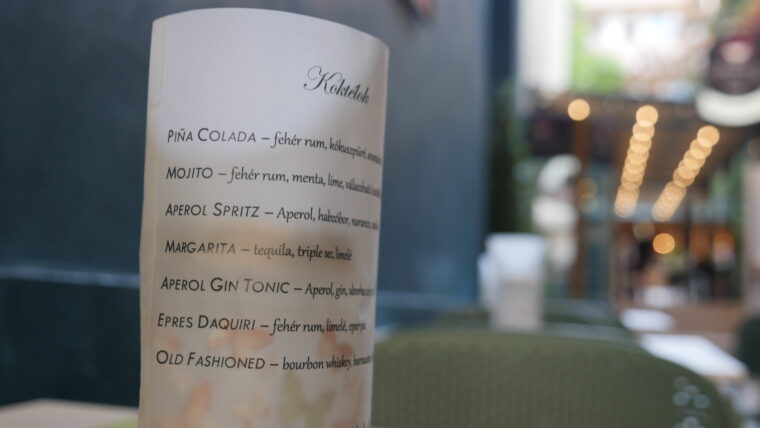 Koktélok
PIÑA COLADA – fehér rum, kókuszpüré,
MOJITO – fehér rum, menta, lime, választható
APEROL SPRITZ – Aperol, habzóbor, narancs,
MARGARITA – tequila, triple sec, limelé
APEROL GIN TONIC – Aperol, gin, uborka,
EPRES DAQUIRI – fehér rum, limelé, eper
OLD FASHIONED – bourbon whiskey,